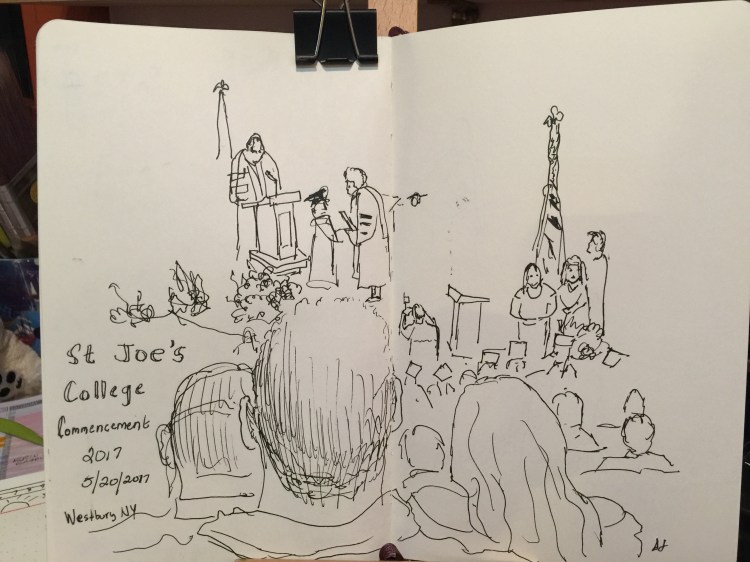 St Joe's
College
Commencement
2017
5/20/2017
Westbury NY